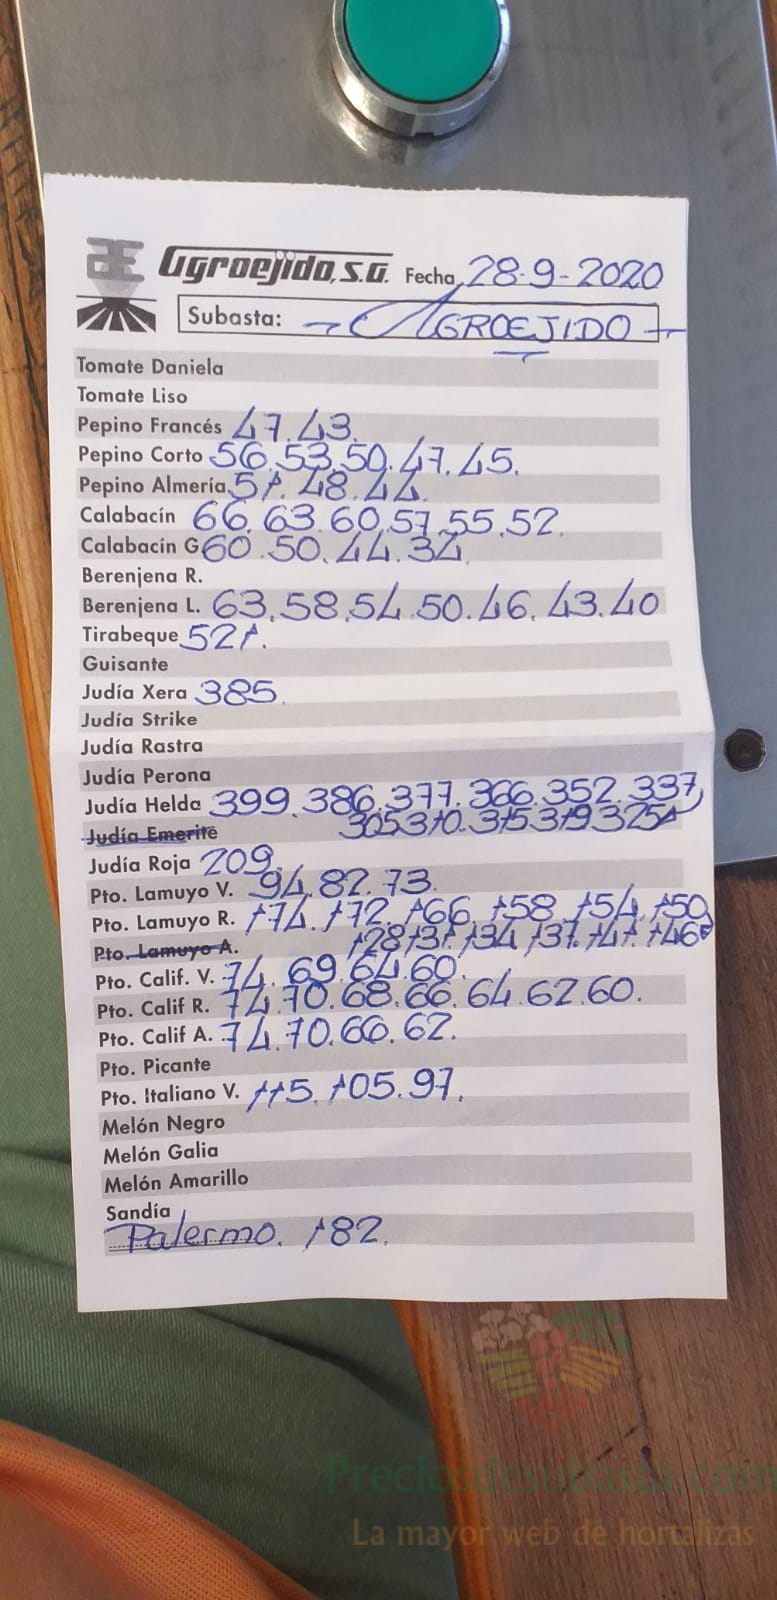 Agroejido, S.A. Fecha 28-9-2020
Subasta: AGROEJIDO
Tomate Daniela
Tomate Liso
Pepino Francés 47.43.
Pepino Corto 56.53.50.47.45.
Pepino Almería 51.48.44.
Calabacín 66.63.60.57.55.52.
Calabacín G 60.50.44.34.
Berenjena R.
Berenjena L. 63.58.54.50.46.43.40
Tirabeque 521.
Guisante
Judía Xera 385.
Judía Strike
Judía Rastra
Judía Perona
Judía Helda 399.386.377.366.352.337
Judía Emerite 305.310.315.319.325
Judía Roja 209.
Pto. Lamuyo V. 94.82.73.
Pto. Lamuyo R. 174.172.166.158.154.150
Pto. Lamuyo A. 128.131.134.137.141.146
Pto. Calif. V. 74.69.64.60.
Pto. Calif R. 74.70.68.66.64.62.60.
Pto. Calif A. 74.70.66.62.
Pto. Picante
Pto. Italiano V. 115.105.97.
Melón Negro
Melón Galia
Melón Amarillo
Sandía
Palermo. 182.
Preciosdesubasta.com
La mayor web de hortalizas